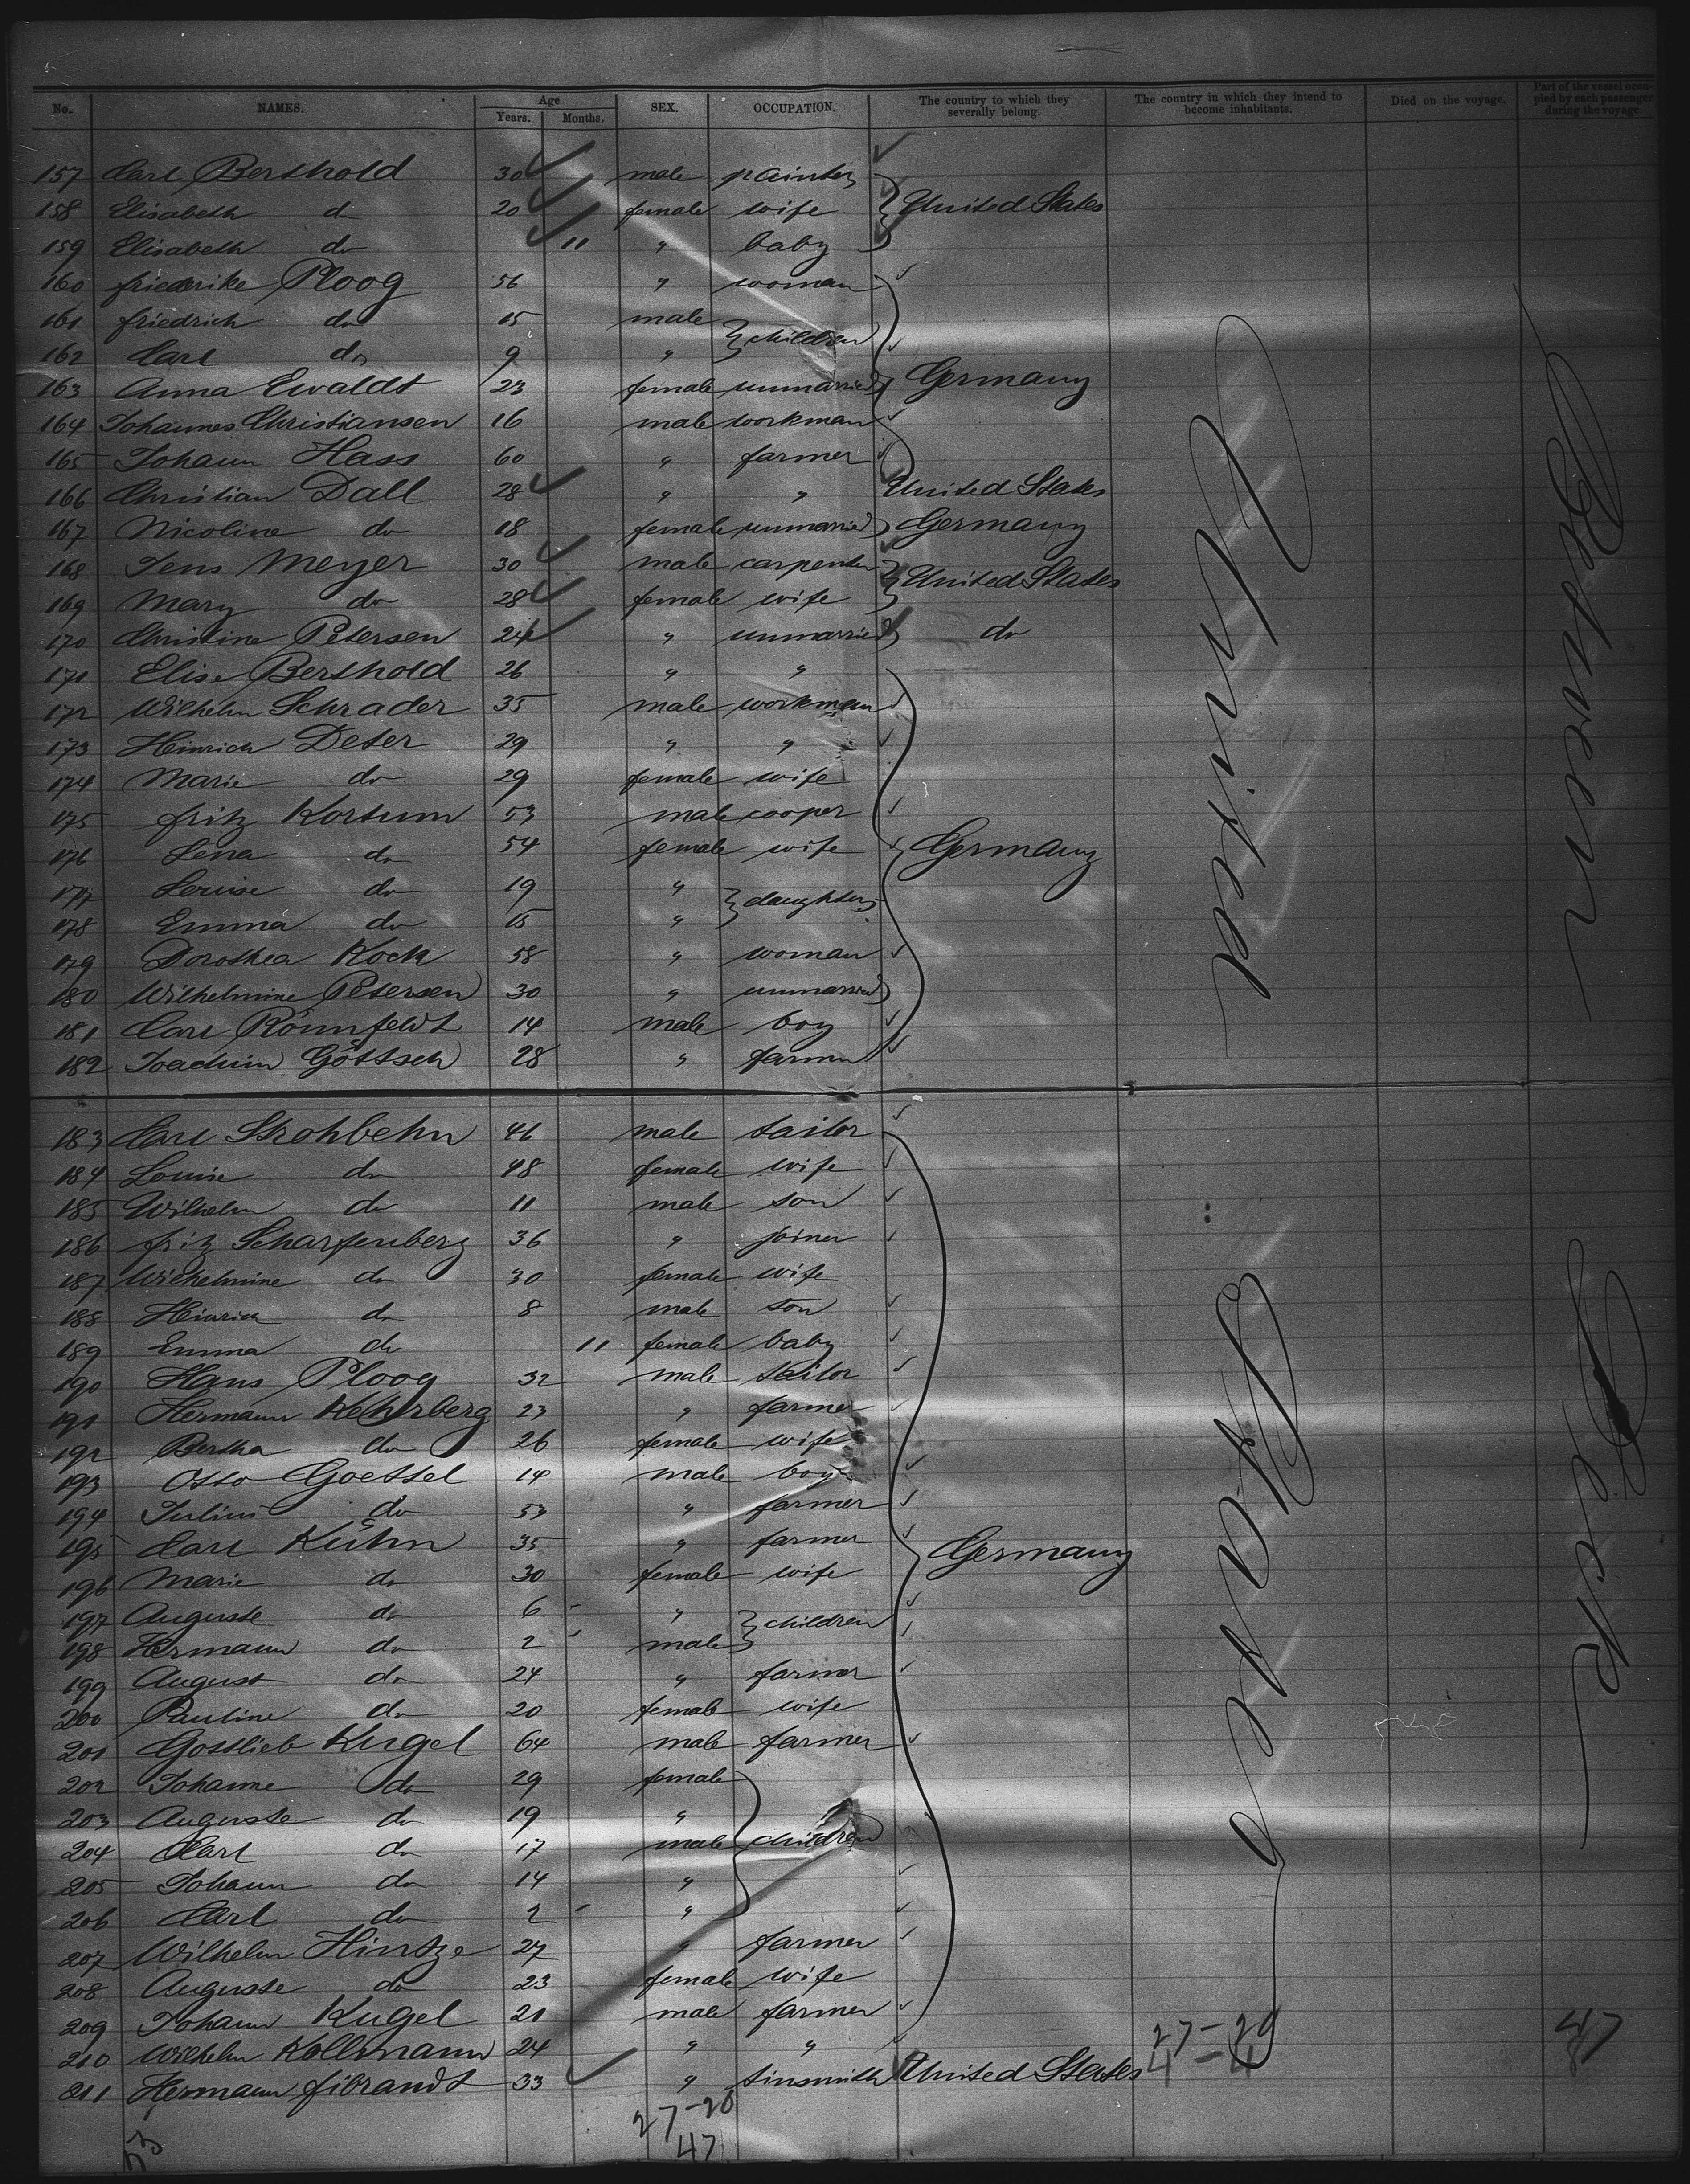 No. NAMES. Age Years. Months. SEX. OCCUPATION. The country to which they severally belong. The country in which they intend to become inhabitants. Died on the voyage. Part of the vessel occupied by each passenger during the voyage.
157 Carl Berthold 30 male painter
158 Elisabeth d 20 female wife United States
159 Elisabeth do 11 " baby
160 friederike Ploog 56 " woman
161 friedrich do 15 male children
162 Carl do 9 "
163 Anna Ewaldt 23 female unmarried Germany
164 Johannes Christiansen 16 male workman
165 Johann Hass 60 " farmer
166 Christian Dall 28 " " United States
167 Nicoline do 18 female unmarried Germany
168 Jens Meyer 30 male carpenter United States
169 Mary do 28 female wife
170 Christine Petersen 24 " unmarried do
171 Elise Berthold 26 " "
172 Wilhelm Schrader 35 male workman
173 Heinrich Deter 29 " "
174 Marie do 29 female wife
175 fritz Kortum 53 male cooper
176 Lena do 54 female wife Germany
177 Louise do 19 " daughters
178 Emma do 15 "
179 Dorothea Koch 58 " woman
180 Wilhelmine Petersen 30 " unmarried
181 Carl Rönnfeldt 14 male boy
182 Joachim Göttsch 28 " farmer
183 Carl Strohbehn 46 male tailor
184 Louise do 48 female wife
185 Wilhelm do 11 male son
186 fritz Scharfenberg 36 " joiner
187 Wilhelmine do 30 female wife
188 Heinrich do 8 male son
189 Emma do 11 female baby
190 Hans Ploog 32 male tailor
191 Hermann Kehrberg 23 " farmer
192 Bertha do 26 female wife
193 Otto Goettel 14 male boy
194 Julius do 53 " farmer
195 Carl Kühn 35 " farmer Germany
196 Marie do 30 female wife
197 Auguste do 6 " children
198 Hermann do 2 male
199 August do 24 " farmer
200 Pauline do 20 female wife
201 Gottlieb Kugel 64 male farmer
202 Johanne do 29 female
203 Auguste do 19 "
204 Carl do 17 male children
205 Johann do 14 "
206 Carl do 2 "
207 Wilhelm Hintze 27 " farmer
208 Auguste do 23 female wife
209 Johann Kugel 21 male farmer
210 Wilhelm Kollmann 24 " "
211 Hermann fibrandt 33 " tinsmith United States
United States
Between Deck
27-20
4-4
47
27-20
47
53